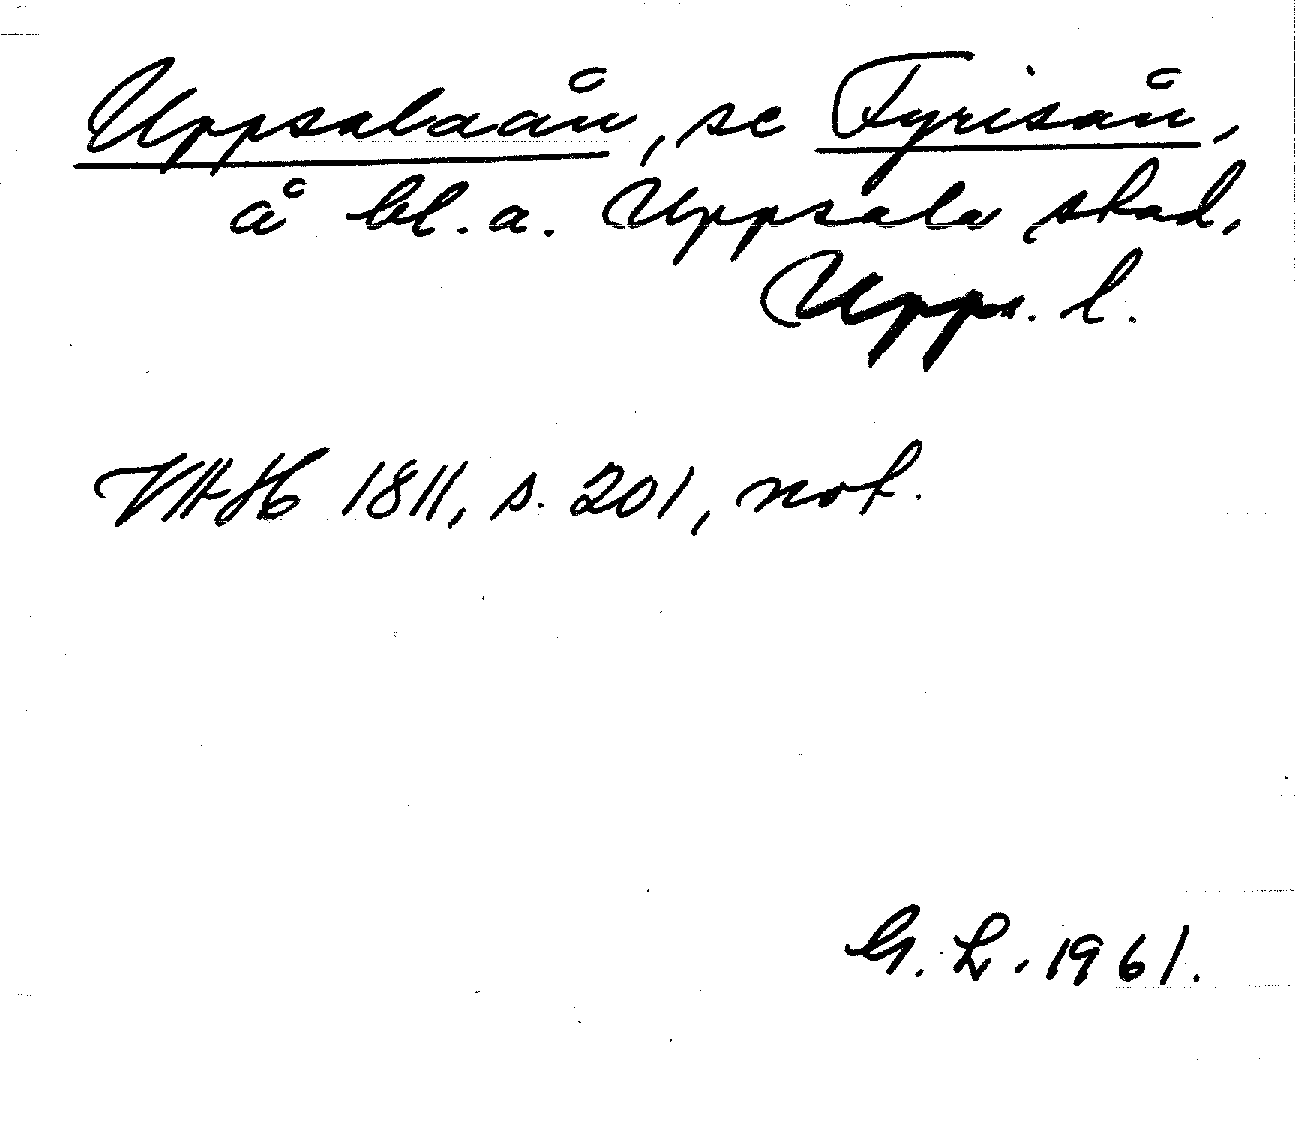 Uppsalaån, se Fyrisån,
å bl. a. Uppsala stad,
Upps. l.
VHAH 1811, s. 201, not.
G. L. 1961.